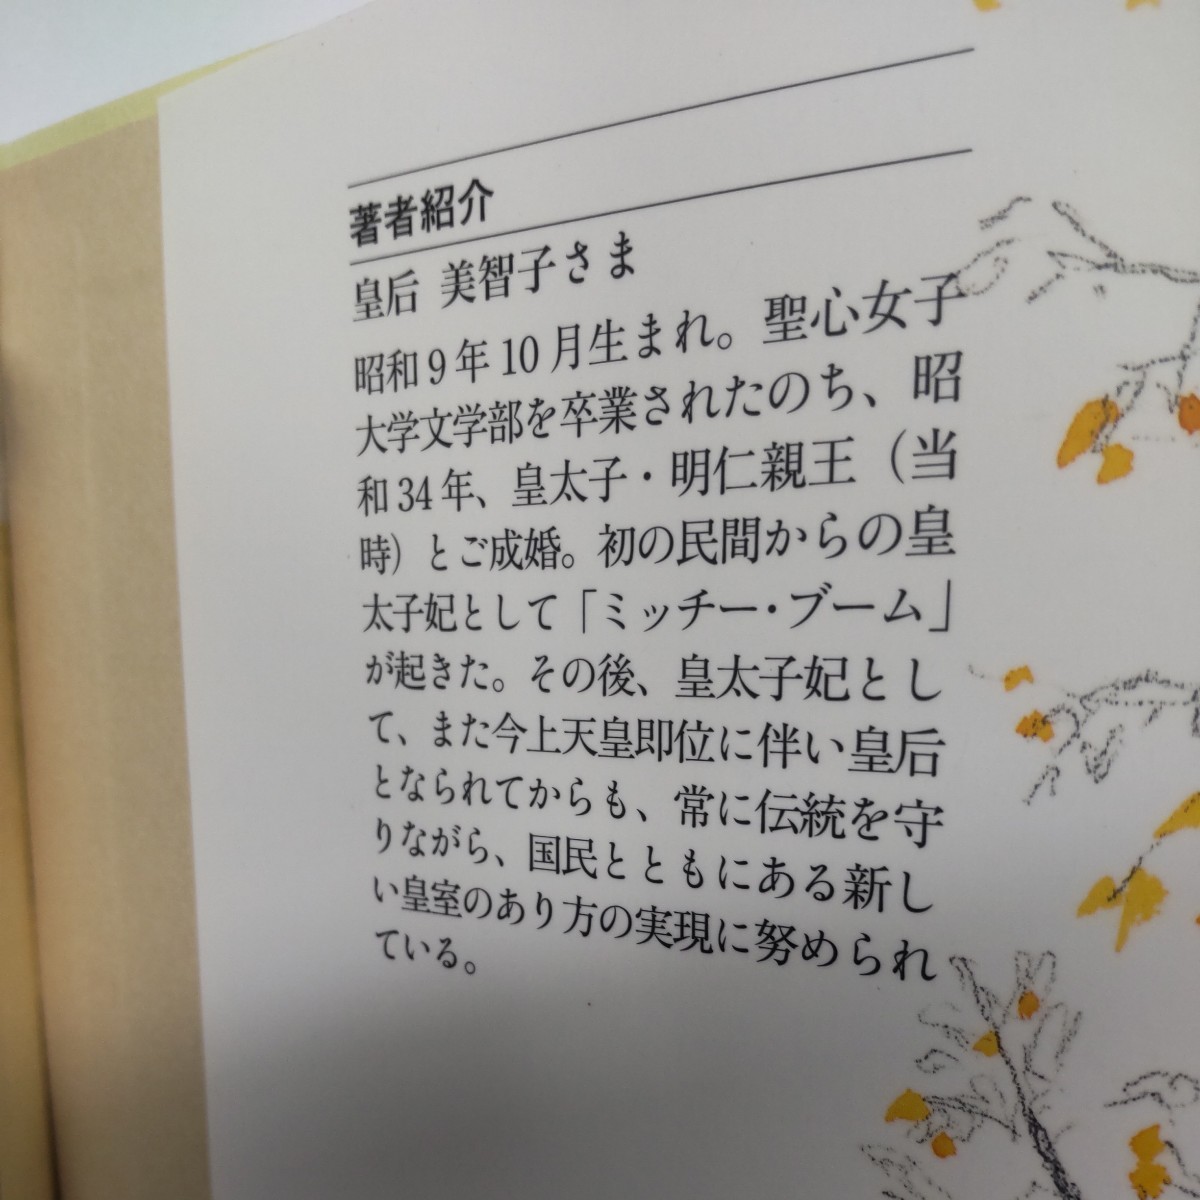 著者紹介
皇后 美智子さま
昭和9年10月生まれ。聖心女子
大学文学部を卒業されたのち、昭
和34年、皇太子・明仁親王（当
時）とご成婚。初の民間からの皇
太子妃として「ミッチー・ブーム」
が起きた。その後、皇太子妃とし
て、また今上天皇即位に伴い皇后
となられてからも、常に伝統を守
りながら、国民とともにある新し
い皇室のあり方の実現に努められ
ている。